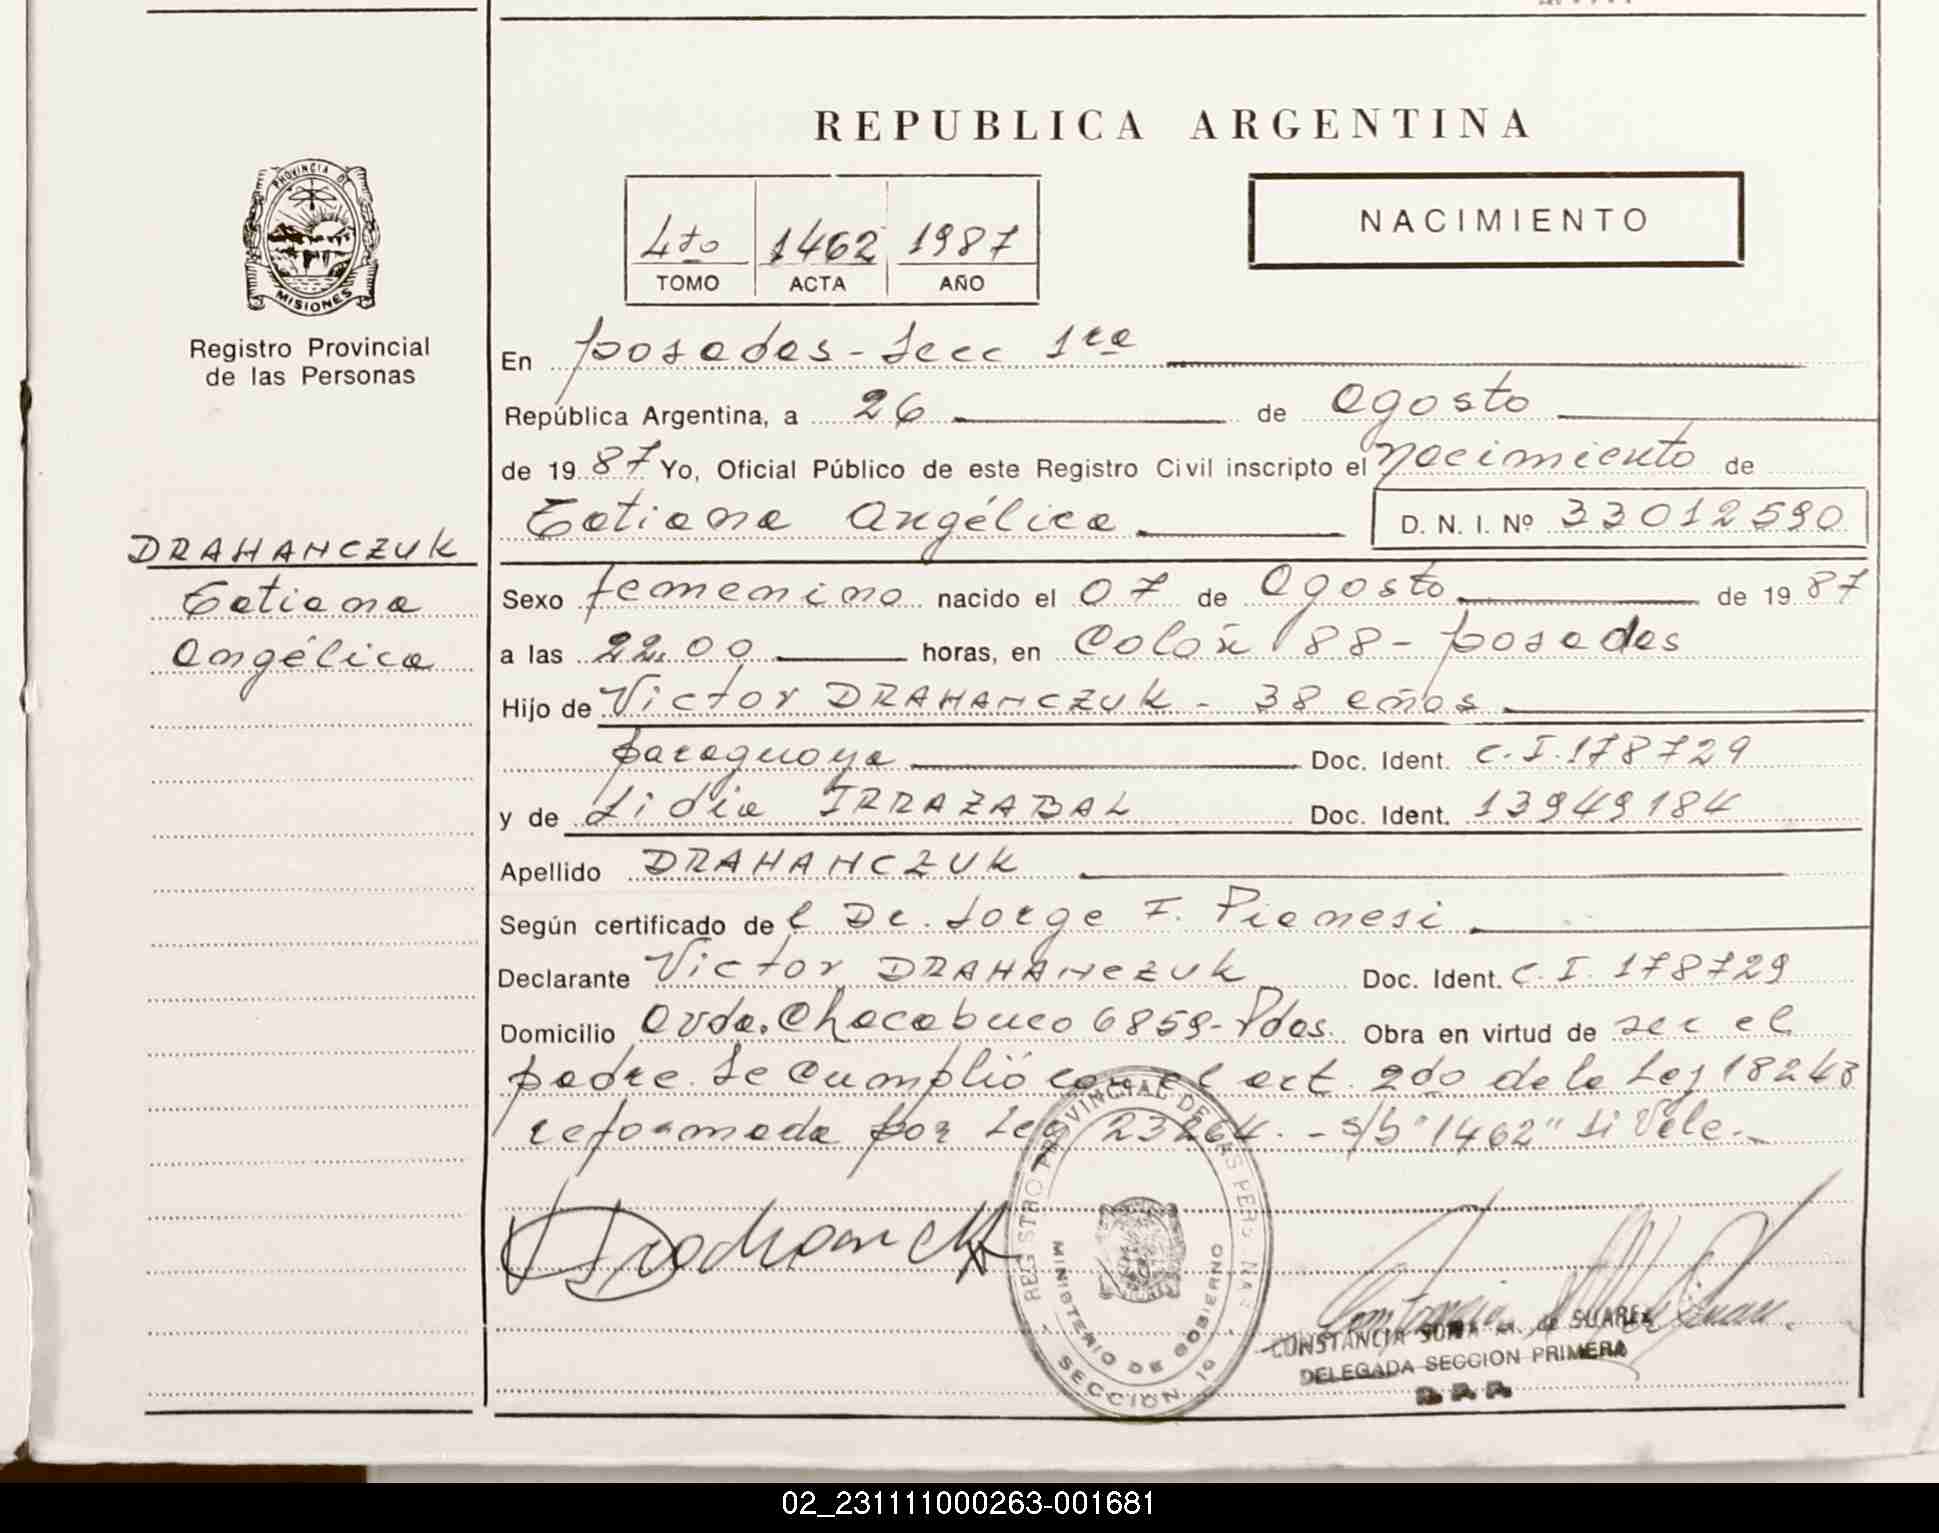 REPUBLICA ARGENTINA
PROVINCIA DE
MISIONES
Registro Provincial
de las Personas
4to 1462 1987
TOMO ACTA AÑO
NACIMIENTO
En Posadas - Secc 1ra
República Argentina, a 26 de Agosto
de 1987 Yo, Oficial Público de este Registro Civil inscripto el nacimiento de
Tatiana Angélica D. N. I. Nº 33012590
DRAHANCZUK
Tatiana
Angélica
Sexo femenino nacido el 07 de Agosto de 1987
a las 22.00 horas, en Colón 88 - Posadas
Hijo de Victor DRAHANCZUK - 38 años
paraguaya Doc. Ident. C.I. 178729
y de Lidia IRRAZABAL Doc. Ident. 13949184
Apellido DRAHANCZUK
Según certificado de l Dr. Jorge F. Pianesi
Declarante Victor DRAHANCZUK Doc. Ident. C.I. 178729
Domicilio Avda. Chacabuco 6859 - Pdas. Obra en virtud de ser el
padre. Se cumplió con el art. 2do de la Ley 18248
reformada por Ley 23264. - s/b "1462" Si Vale.-
REGISTRO PROVINCIAL DE LAS PERSONAS
MINISTERIO DE GOBIERNO
SECCION 1º
CONSTANCIA SUAREZ
DELEGADA SECCION PRIMERA
02_231111000263-001681